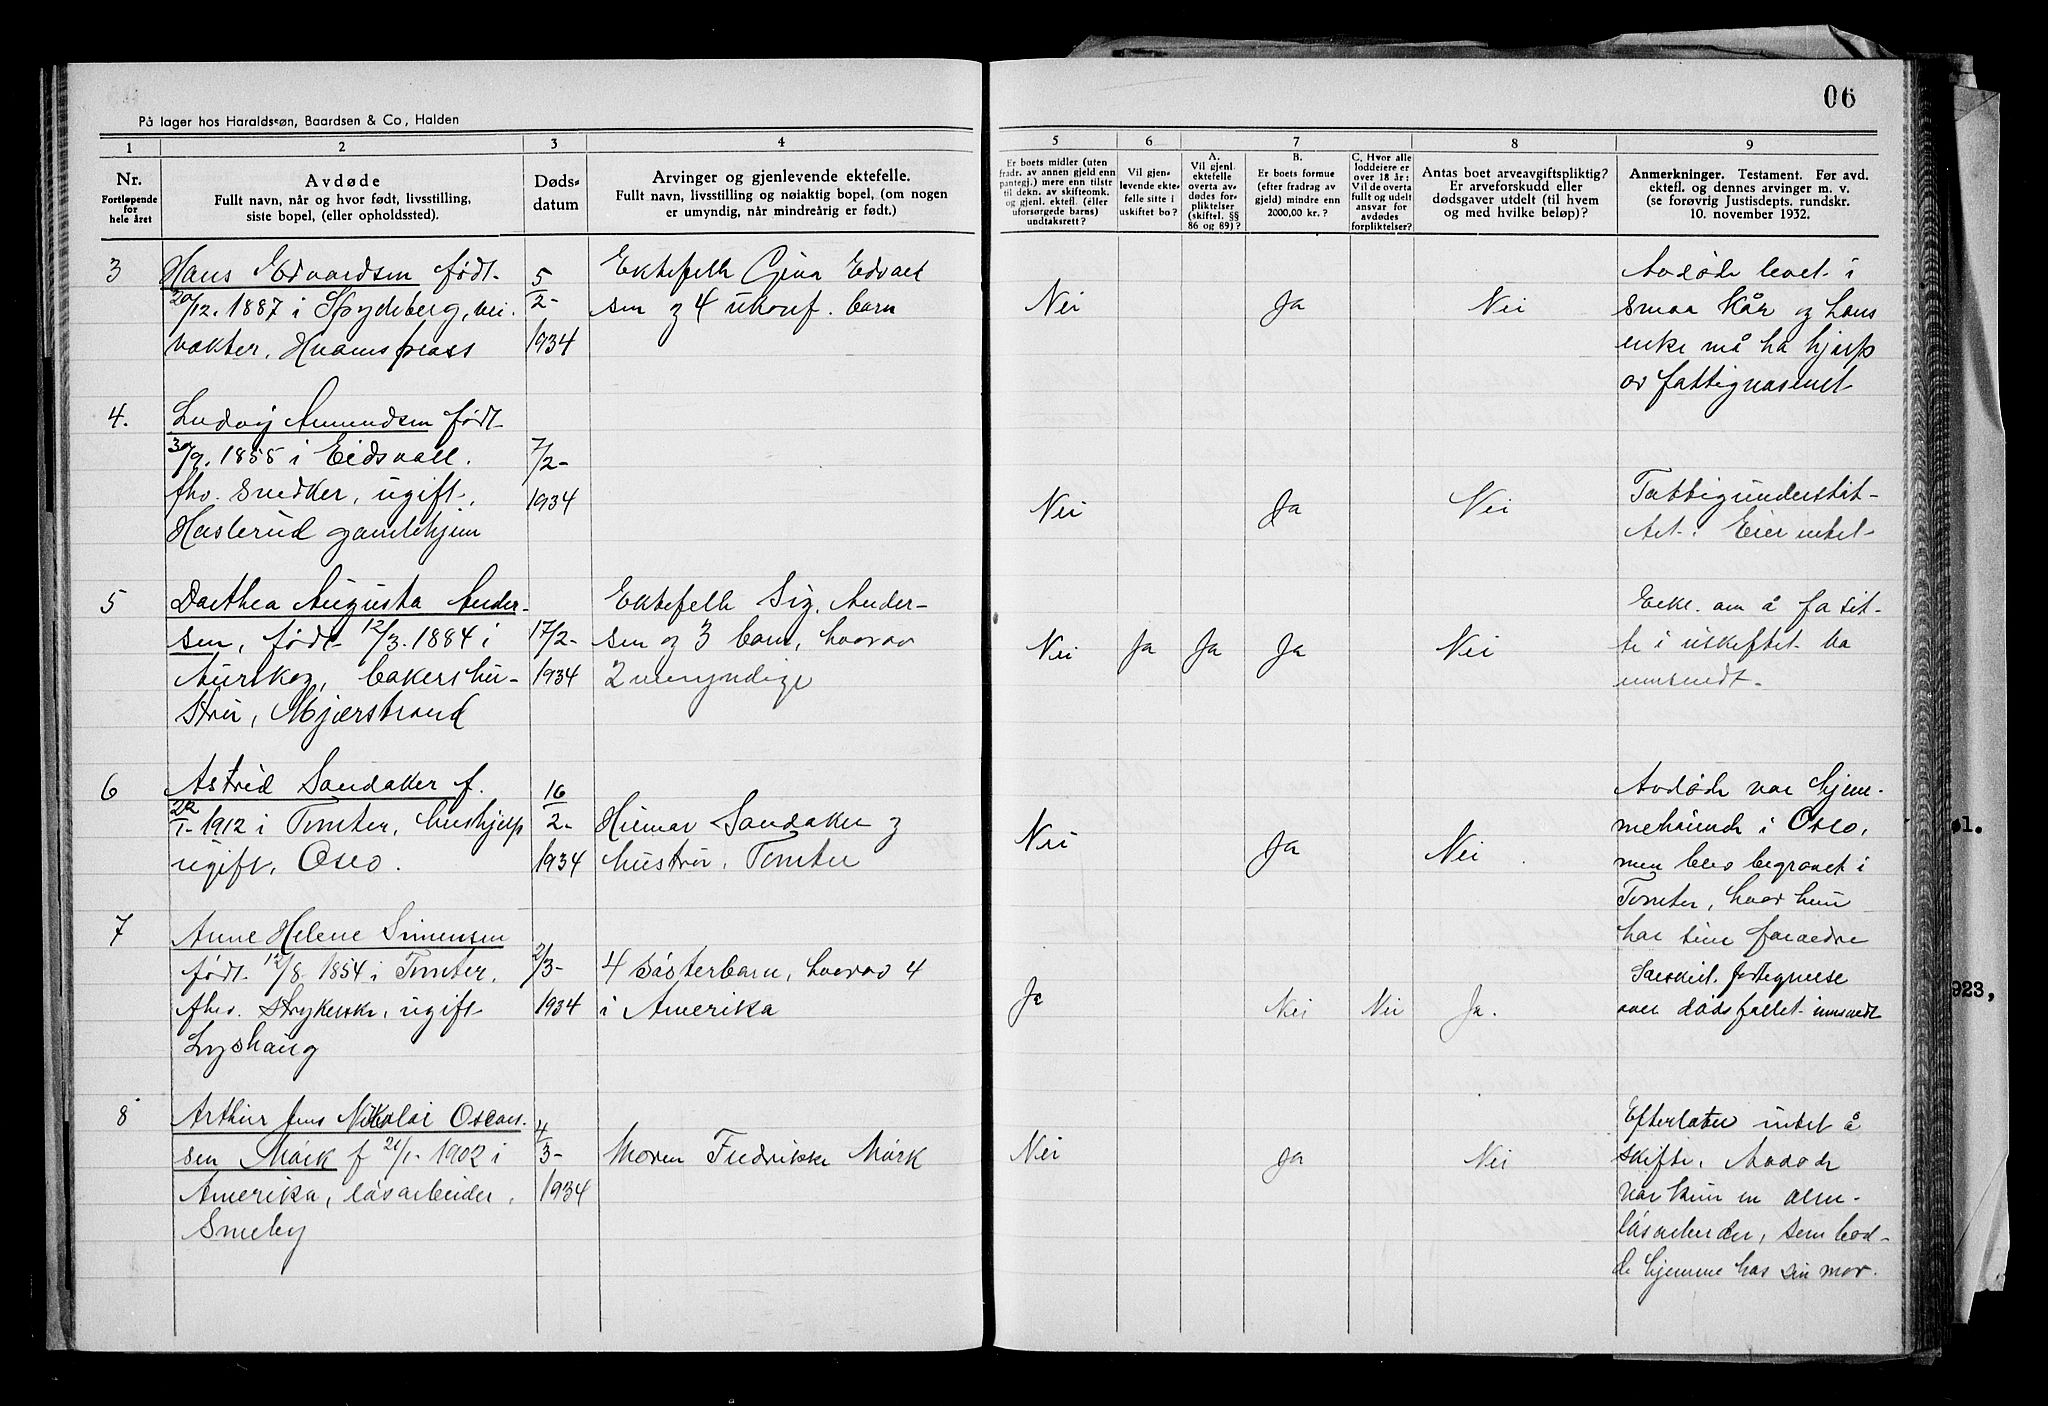 06
På lager hos Haraldssøn, Baardsen & Co, Halden
1 2 3 4 5 6 7 8 9
Nr.
Fortløpende
for
hele året
Avdøde
Fullt navn, når og hvor født, livsstilling,
siste bopel, (eller opholdssted).
Døds-
datum
Arvinger og gjenlevende ektefelle.
Fullt navn, livsstilling og nøiaktig bopel, (om nogen
er umyndig, når mindreårig er født.)
Er boets midler (uten
fradr. av annen gjeld enn
pantegj.) mere enn tilstr
til dekn. av skifteomk.
og gjenl. ektefl. (eller
uforsørgede barns)
undtaksrett?
Vil gjen-
levende ekte-
felle sitte i
uskiftet bo?
A.
Vil gjenl.
ektefelle
overta av-
dødes for-
pliktelser
(skiftel. §§
86 og 89)?
B.
Er boets formue
(efter fradrag av
gjeld) mindre enn
2000,00 kr.?
C. Hvor alle
loddeiere er
over 18 år:
Vil de overta
fullt og udelt
ansvar for
avdødes
forpliktelser?
Antas boet arveavgiftspliktig?
Er arveforskudd eller
dødsgaver utdelt (til hvem
og med hvilke beløp)?
Anmerkninger. Testament. Før avd.
ektefl. og dennes arvinger m. v.
(se forøvrig Justisdepts. rundskr.
10. november 1932.
3
Hans Edvardsen født
20/12. 1887 i Spydeberg, vei-
vokter, Hvamsplass
5/2-
1934
Ektefelle Gina Edvard
sen og 4 ukonf. barn
Nei Ja Nei
Avdøde levet i
smaa kår og hans
enke må ha hjelp
av fattigvæsenet
4.
Ludvig Amundsen født
30/9. 1855 i Eidsvoll.
fhv. snedker, ugift,
Haslerud gamlehjem
7/2-
1934
Nei Ja Nei
Fattigunderstøt-
tet. Eier intet
5
Dorthea Augusta Ander-
sen, født 12/3. 1884 i
Aurskog, bakershu-
stru, Mjærstrand
17/2-
1934
Ektefelle Sig. Ander-
sen og 3 barn, hvorav
2 umyndige
Nei Ja Ja Ja Nei
Erkl. om å få sit-
te i uskiftet bo
innsendt
6
Astrid Sandaker f.
1912 i Tomter, hushjelp
ugift, Oslo.
16/2-
1934
Hilmar Sandaker og
hustru, Tomter
Nei Ja Nei
Avdøde var hjem-
mehørende i Oslo,
men blev begravet i
Tomter, hvor hun
har sine foreldre
7
Anne Helene Simensen
født 12/8 1854 i Tomter,
fhv. strykerske, ugift
Lyshaug
2/3-
1934
4 søsterbarn, hvorav 4
i Amerika
Ja Nei Nei Ja.
Særskilt fortegnelse
over dødsfallet innsendt
8
Arthur Jens Nikolai Oscar-
sen Mørk f 21/1- 1902 i
Amerika, løsarbeider,
Smeby
4/3-
1934
Moren Fredrikke Mørk
Nei Ja Nei
Efterlater intet å
skifte. Avdøde
var kun en alm.
løsarbeider, som bod-
de hjemme hos sin mor.
øl.
923,